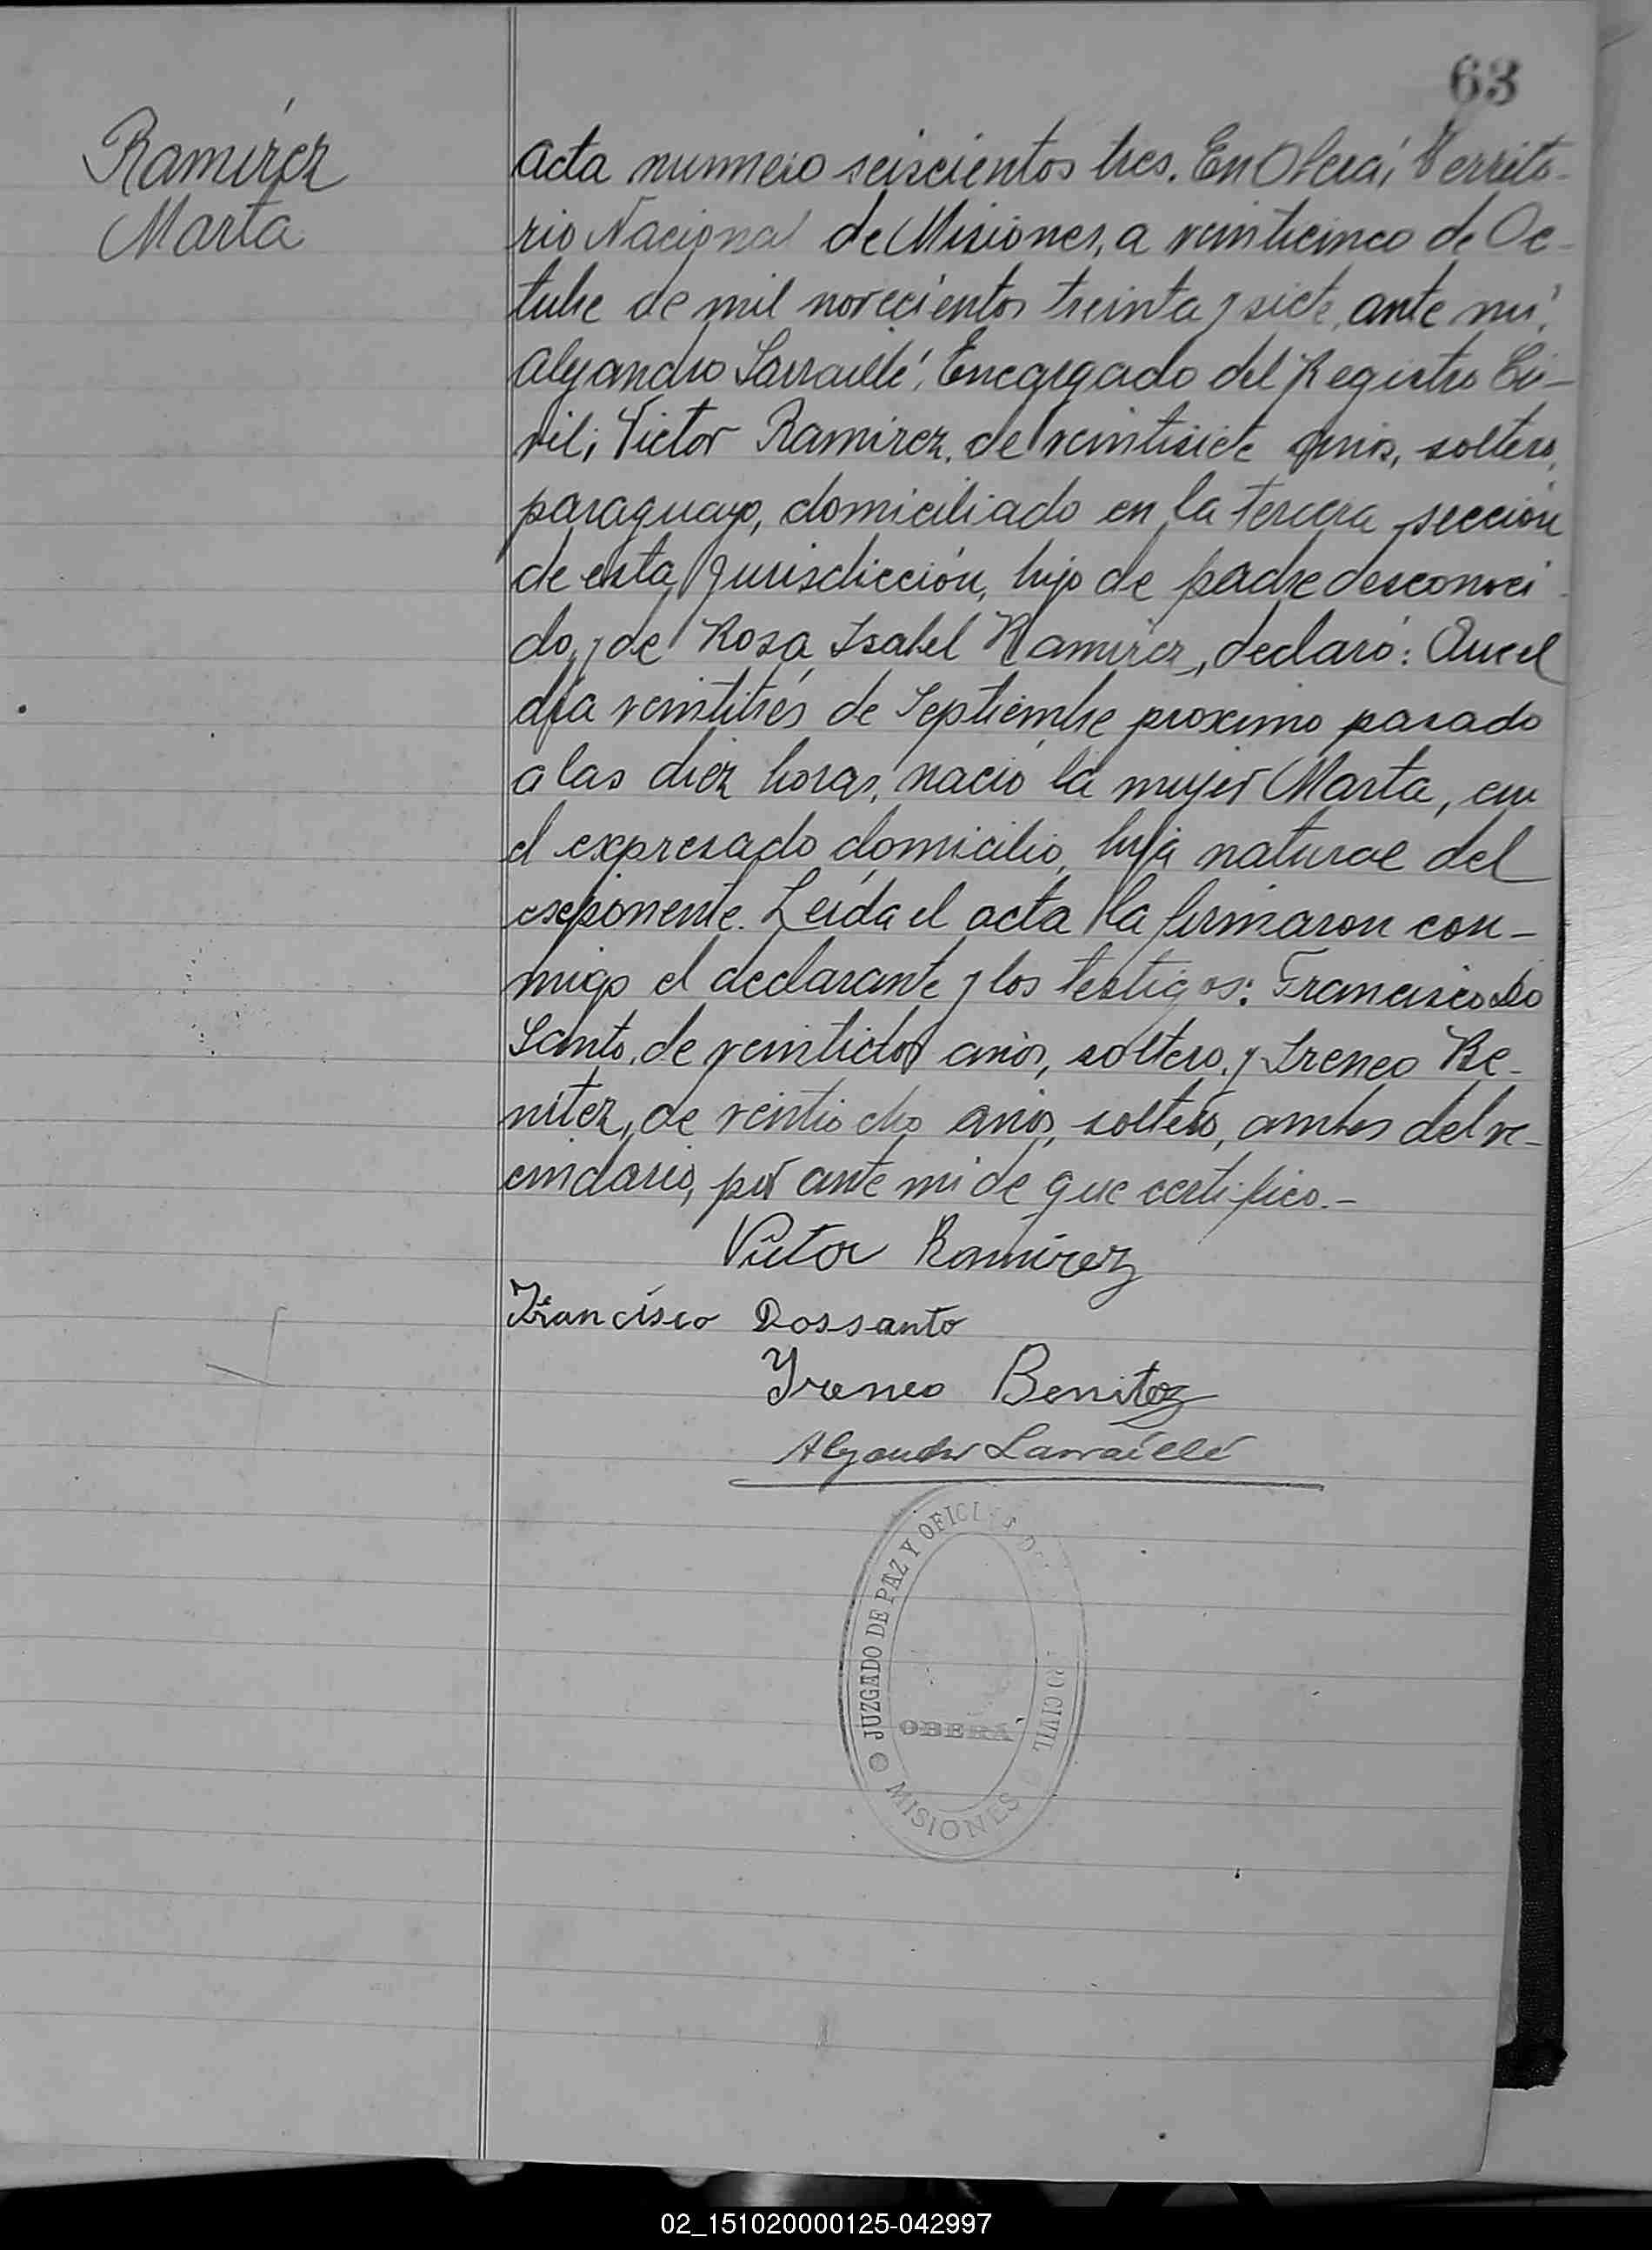 63
Ramírez
Marta
Acta numero seiscientos tres. En Oberá, Territo-
rio Nacional de Misiones, a veinticinco de Oc-
tubre de mil novecientos treinta y siete, ante mí,
Alejandro Larraillé, Encargado del Registro Ci-
vil; Victor Ramirez, de veintisiete años, soltero,
paraguayo, domiciliado en la tercera sección
de esta Jurisdicción, hijo de padre desconoci-
do, y de Rosa Isabel Ramirez, declaró: Que el
día veintitrés de Septiembre proximo pasado
a las diez horas, nació la mujer Marta, en
el expresado domicilio, hija natural del
exponente. Leída el acta la firmaron con-
migo el declarante y los testigos: Francisco Do
Santo, de veintidos años, soltero, y Ireneo Be-
nitez, de veintiocho años, soltero, ambos del ve-
cindario, por ante mi de que certifico.-
Victor Ramirez
Francisco Dossanto
Yreneo Benitez
Alejandro Larraillé
JUZGADO DE PAZ Y OFICI
CIVIL
OBERÁ
MISIONES
02_151020000125-042997